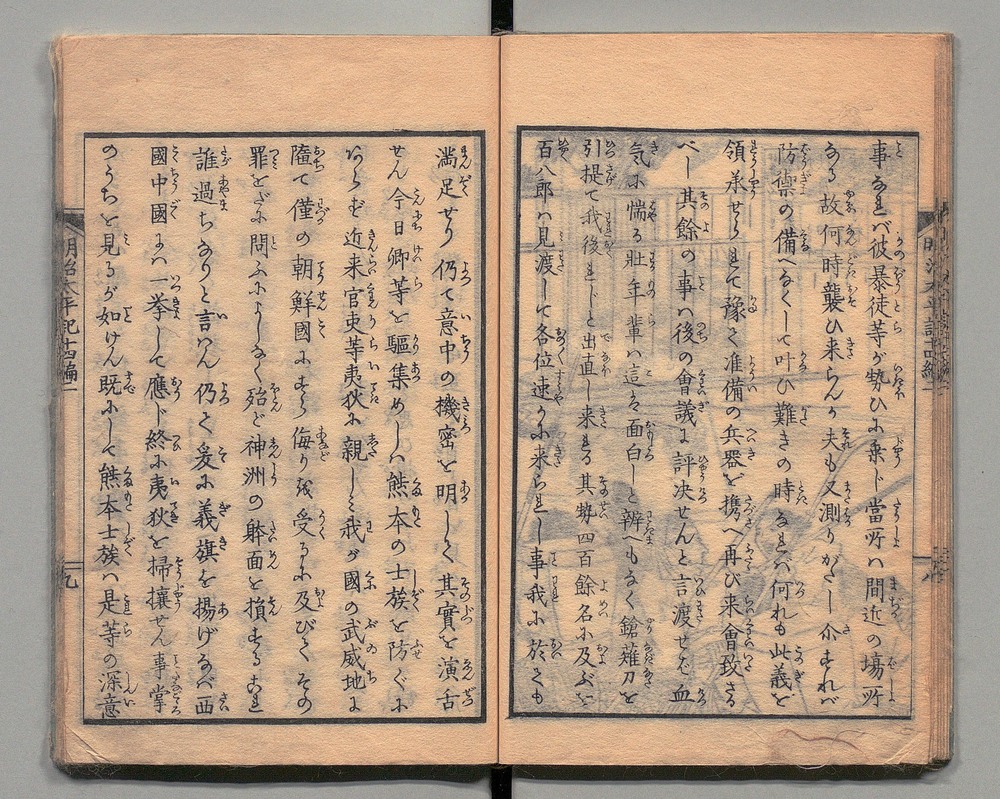 事なれバ彼暴徒等が勢ひに乗ド當所ハ間近の場所
なる故何時襲ひ来らんか夫も又測りがたし尒すれバ
防禦の備へなくして叶ひ難きの時なれバ何れも此義を
領承せられて豫て准備の兵器を携へ再び来會致さる
べし其餘の事ハ後の會議に評決せんと言渡せバ血
気に惴る壮年輩ハ這ハ面白しと辨へもなく鎗薙刀を
引提て我後れじと出直し来る其勢四百餘名に及ぶを
百八郎ハ見渡して各位速かに来られし事我に於ても
満足せり仍て意中の機密を明して其實を演舌
せん今日卿等を驅集めしハ熊本の士族を防ぐに
あらず近来官吏等夷狄に親しミ我が國の武威地に
墮て僅の朝鮮國にすら侮り残受るに及びてその
罪をだに問ふによしなく殆ど神洲の躰面を損するこれ
誰過ちなりと言ハん仍て爰に義旗を揚げなバ西
國中國にハ一挙して應ド終に夷狄を掃攘せん事掌
のうちを見るが如けん既にして熊本士族ハ是等の深意
明治太平記十四編一
九
明治太平記十四編一
八